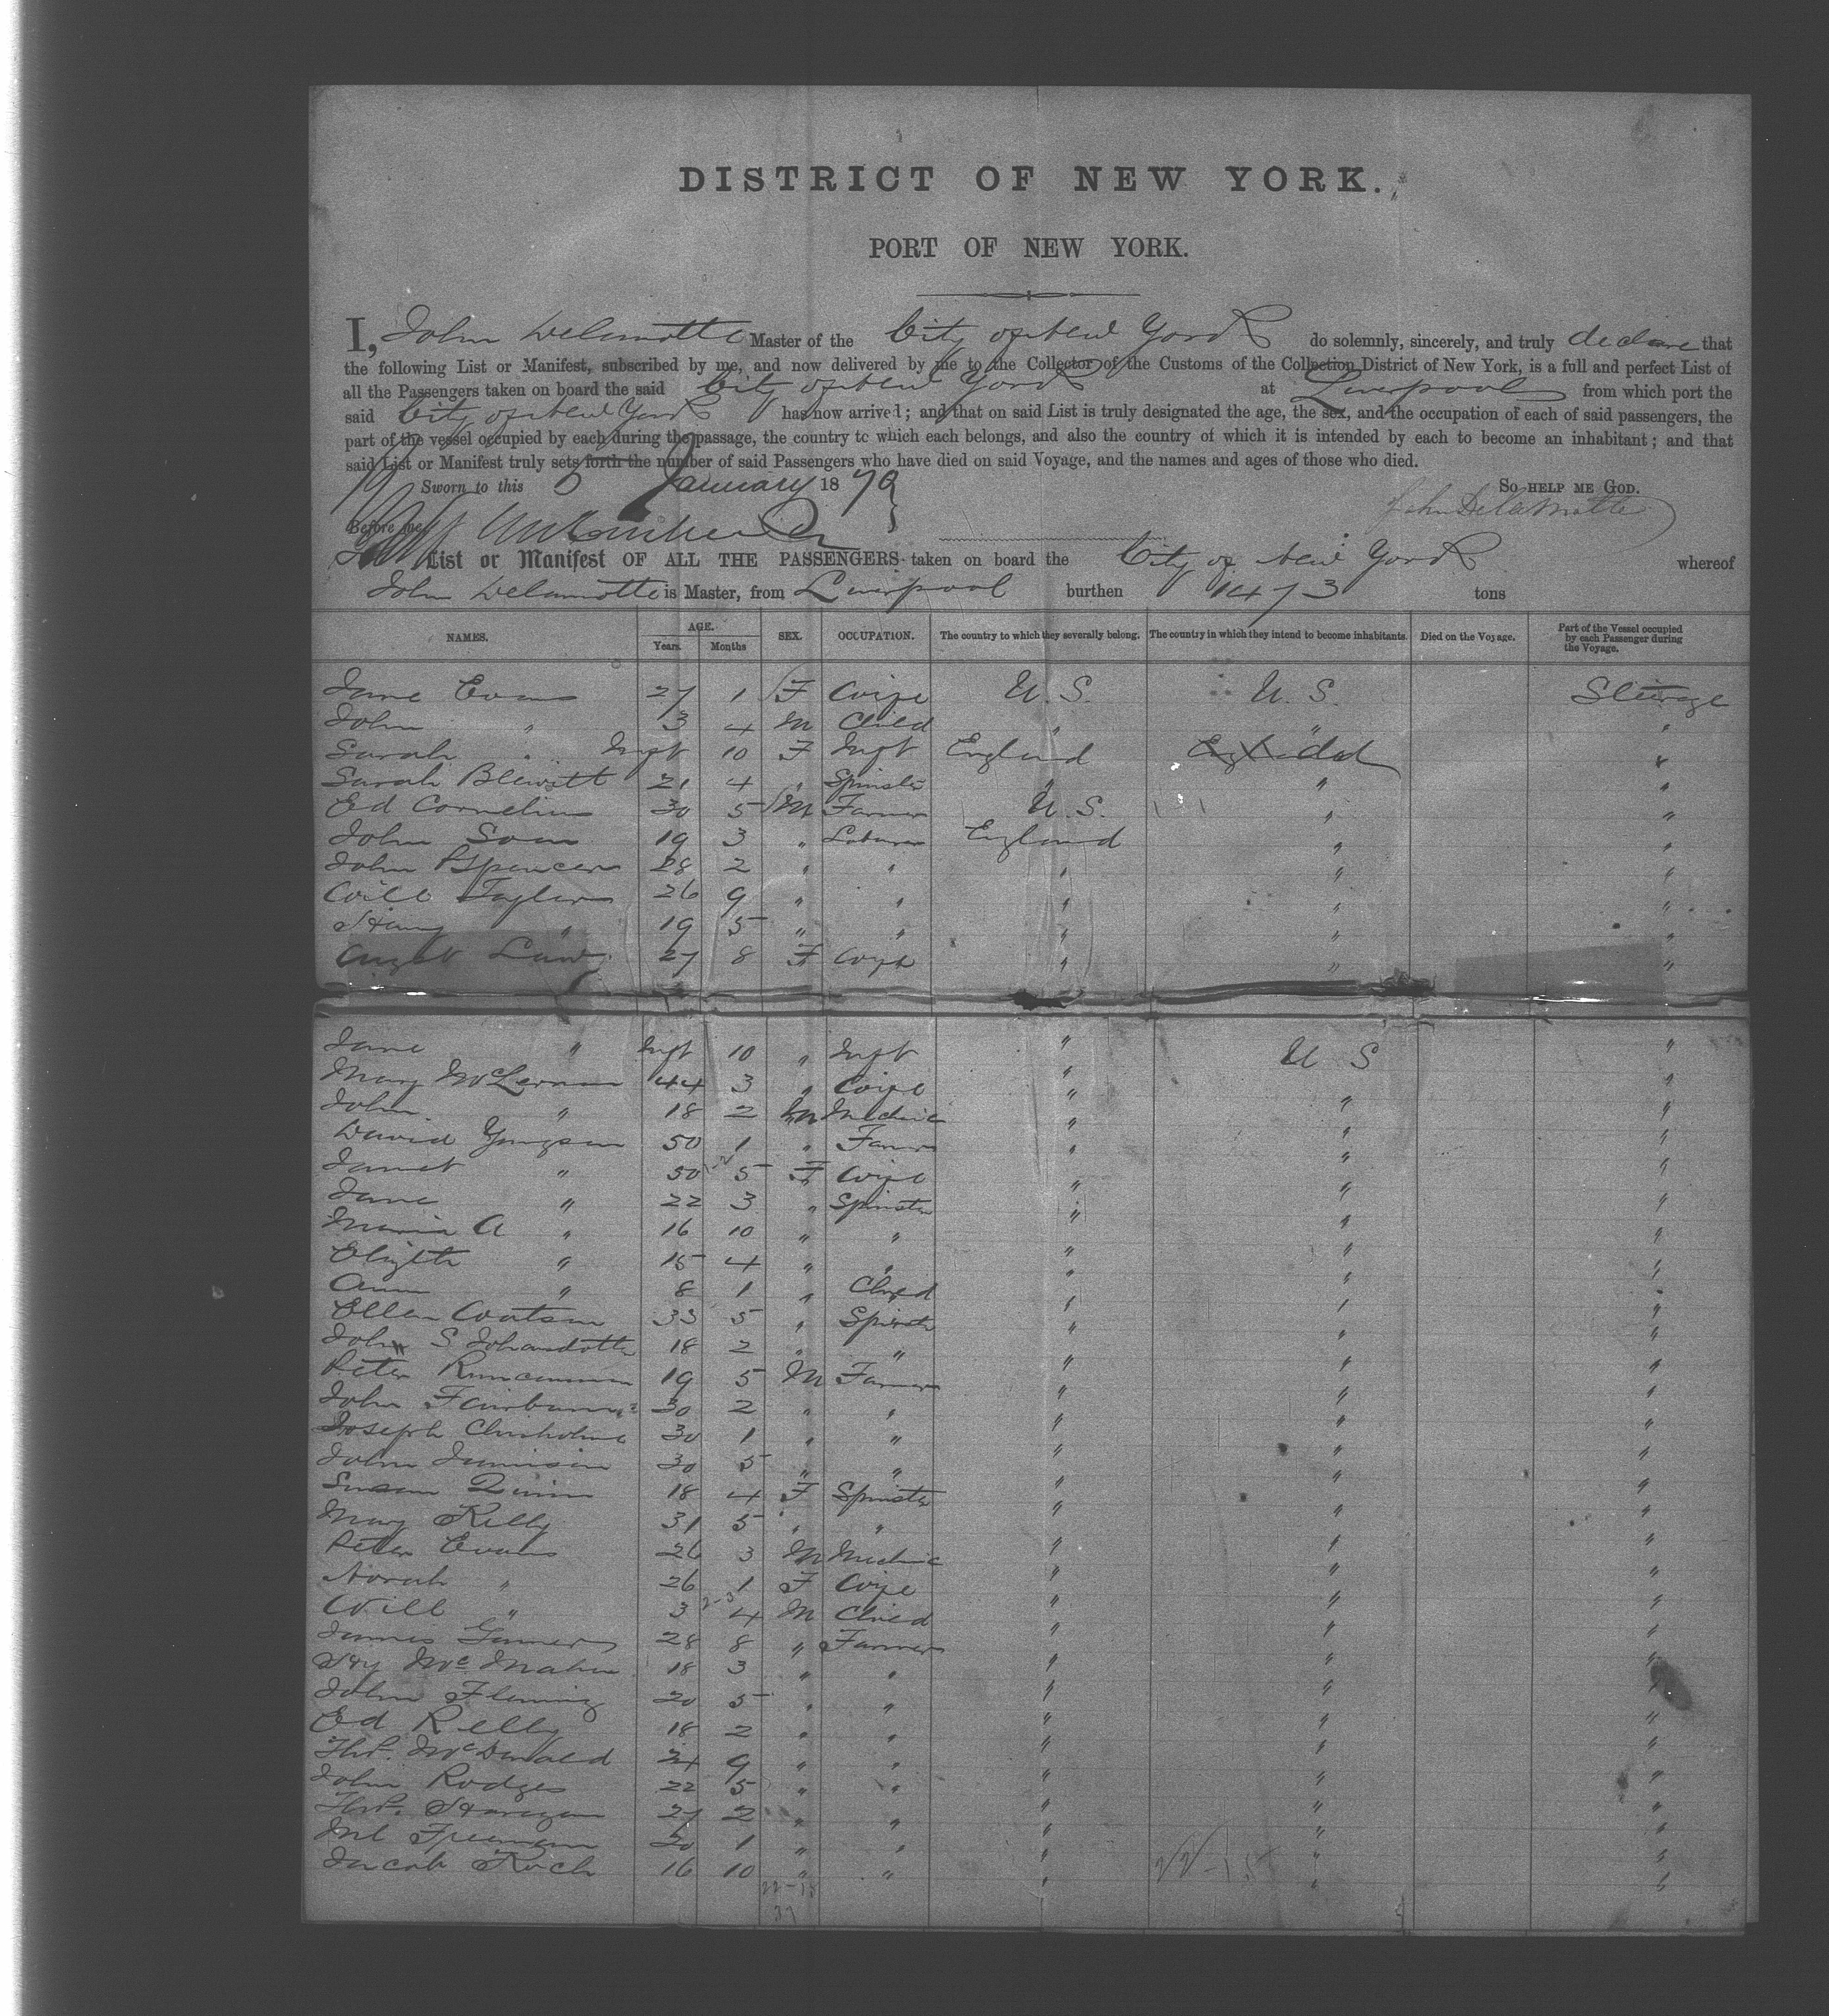 DISTRICT OF NEW YORK.
PORT OF NEW YORK.
I, John Delamotte Master of the City of New York do solemnly, sincerely, and truly declare that
the following List or Manifest, subscribed by me, and now delivered by me to the Collector of the Customs of the Collection District of New York, is a full and perfect List of
all the Passengers taken on board the said City of New York at Liverpool from which port the
said City of New York has now arrived; and that on said List is truly designated the age, the sex, and the occupation of each of said passengers, the
part of the vessel occupied by each during the passage, the country to which each belongs, and also the country of which it is intended by each to become an inhabitant; and that
said List or Manifest truly sets forth the number of said Passengers who have died on said Voyage, and the names and ages of those who died.
Sworn to this 5 January 1870 So HELP ME GOD.
Before me, John Delamotte
List or Manifest OF ALL THE PASSENGERS taken on board the City of New York whereof
John Delamotte is Master, from Liverpool burthen 1473 tons
NAMES. AGE. Years. Months SEX. OCCUPATION. The country to which they severally belong. The country in which they intend to become inhabitants. Died on the Voyage. Part of the Vessel occupied by each Passenger during the Voyage.
Jane Evans 27 1 F Wife U.S. U.S. Steerage
John " 3 4 M Child " " "
Sarah " Inft 10 F Inft England "
Sarah Blewitt 21 4 " Spinster " " "
Ed Cornelius 30 5 M Farmer U.S. " "
John 19 3 " Laborer England " "
John Spencer 28 2 " " " " "
Will Taylor 26 9 " " " " "
Harry " 19 5 " " " " "
27 8 F Wife " " "
Jane " Inft 10 " Inft " U S "
Mary McLernan 44 3 " Wife " "
John " 18 2 M Mechnic " " "
David 50 1 " Farmer " " "
Janet " 50 5 F Wife " " "
Jane " 22 3 " Spinster " " "
Maria A " 16 10 " " " " "
Elizbth " 15 4 " " " " "
Ann " 8 1 " Child " " "
Ellen Watson 33 5 " Spinster " " "
John S Johansdotter 18 2 " " " " "
Peter 19 5 M Farmer " " "
John Fairburn 30 2 " " " " "
Joseph Chisholme 30 1 " " " " "
John Jamison 30 5 " " " " "
Susan Quinn 18 4 F Spinster " " "
Mary Kelly 31 5 " " " " "
Peter Evans 26 3 M Mechnic " " "
Norah " 26 1 F Wife " " "
Will " 3 4 M Child " " "
James 28 8 " Farmer " " "
Hy McMahon 18 3 " " " " "
John Fleming 20 5 " " " " "
Ed Kelly 18 2 " " " " "
Thos. McDonald 24 9 " " " " "
John Rodges 22 5 " " " " "
Thos. 27 2 " " " " "
Freeman 20 1 " " " " "
Jacob Koch 16 10 " " " " "